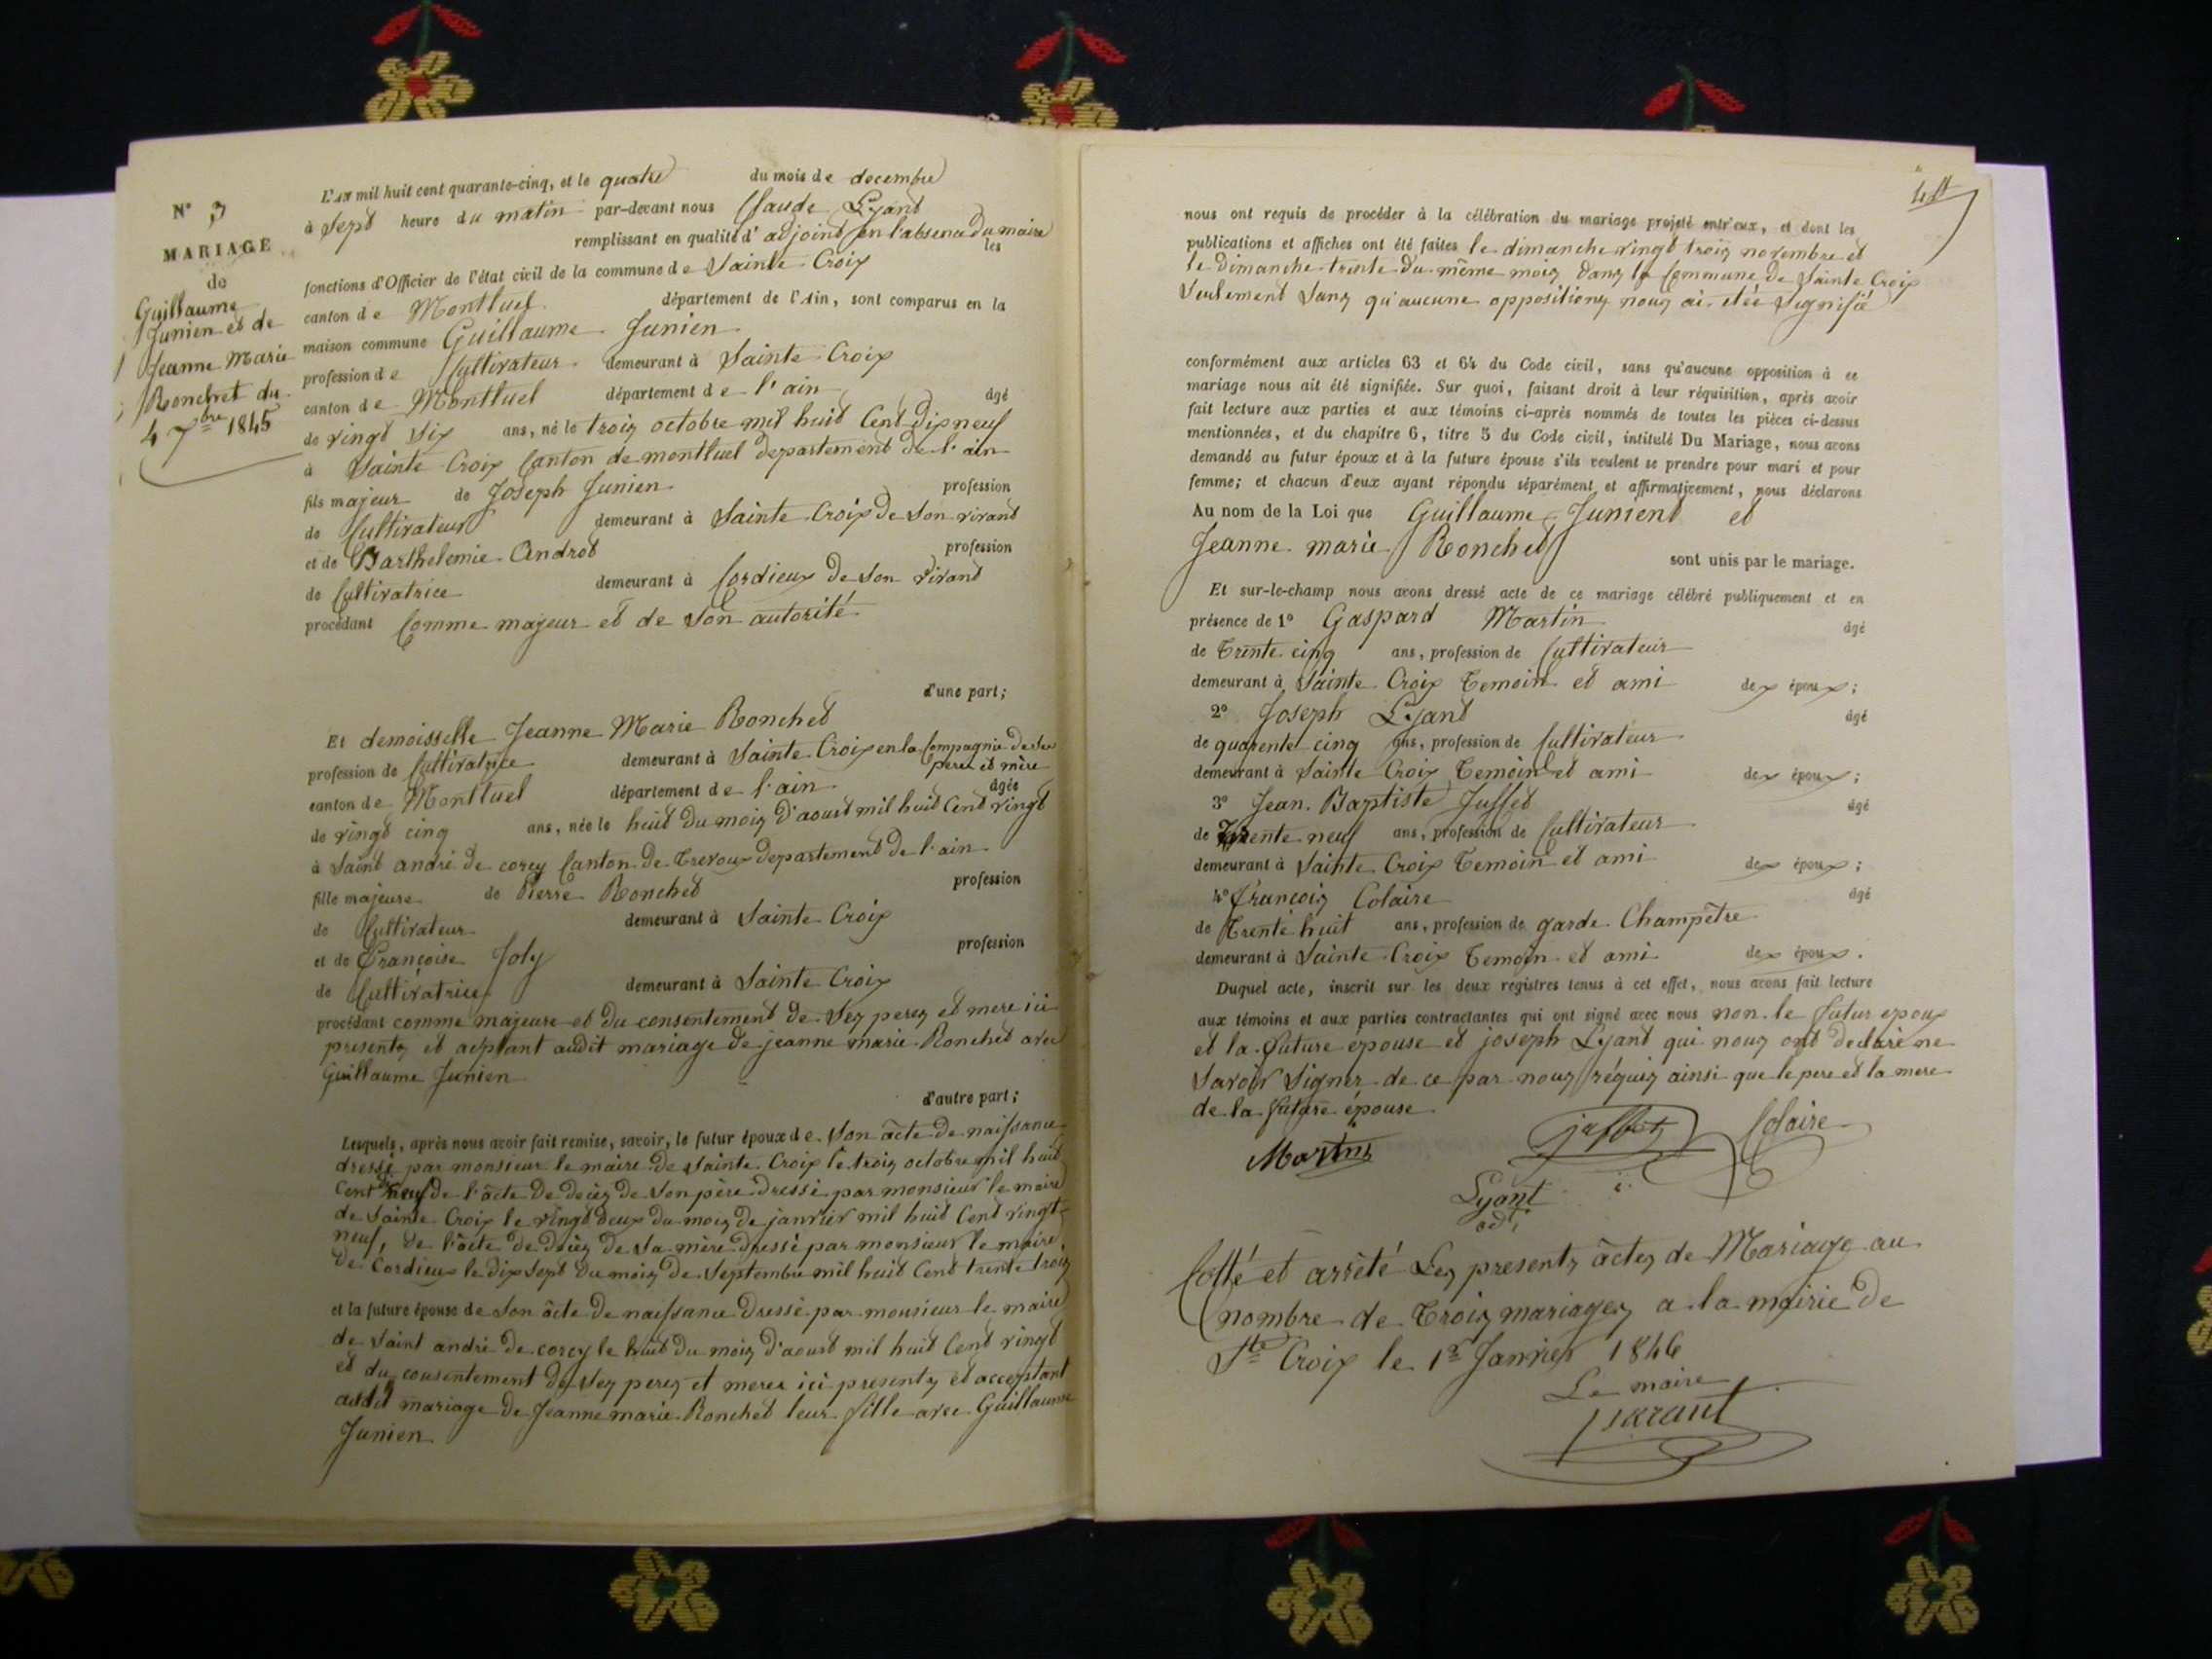 N° 3
MARIAGE
de
Guillaume
Junien et de
Jeanne Marie
Ronchet du
4 7bre 1845
L'an mil huit cent quarante-cinq, et le quatre du mois de decembre
à Sept heure du matin par-devant nous Claude Lyant
remplissant en qualité d'adjoint en l'absence du maire les
fonctions d'Officier de l'état civil de la commune de Sainte Croix
canton de Montluel département de l'Ain, sont comparus en la
maison commune Guillaume Junien
profession de Cultivateur demeurant à Sainte Croix
canton de Montluel département de l'ain âgé
de vingt Six ans, né le trois octobre mil huit Cent dix neuf
à Sainte Croix Canton de montluel departement de l'ain
fils majeur de Joseph Junien profession
de Cultivateur demeurant à Sainte Croix de Son vivant
et de Barthelemie Androt profession
de Cultivatrice demeurant à Cordieux de Son vivant
procédant Comme majeur et de Son autorité
d'une part;
Et demoisselle Jeanne Marie Ronchet
profession de Cultivatrice demeurant à Sainte Croix en la Compagnie de Ses
pere et mère
canton de Montluel département de l'ain âgée
de vingt cinq ans, née le huit du mois d'aoust mil huit Cent vingt
à Saint andré de corcy Canton de Trevoux departement de l'ain
fille majeure de Pierre Ronchet profession
de Cultivateur demeurant à Sainte Croix
et de Françoise Joly profession
de Cultivatrice demeurant à Sainte Croix
procédant comme majeure et du consentement de Ses peres et mere ici
presents et aceptant audit mariage de jeanne marie Ronchet avec
Guillaume Junien
d'autre part;
Lesquels, après nous avoir fait remise, savoir, le futur époux de Son äcte de naissance
dressé par monsieur le maire de Sainte Croix le trois octobre mil huit
Cent dix neuf de l'äcte de décès de Son père dressé par monsieur le maire
de Sainte Croix le vingt deux du mois de janvier mil huit Cent vingt
neuf, de l'äcte de décès de Sa mère dressé par monsieur le maire
de Cordieux le dix Sept du mois de Septembre mil huit Cent trente trois
et la future épouse de Son äcte de naissance dressé par monsieur le maire
de Saint andré de corcy le huit du mois d'aoust mil huit Cent vingt
et du consentement de Ses peres et meres ici presents et acceptant
audit mariage de Jeanne marie Ronchet leur fille avec Guillaume
Junien
nous ont requis de procéder à la célébration du mariage projeté entr'eux, et dont les
publications et affiches ont été faites le dimanche vingt trois novembre et
le dimanche trente du même mois dans la Commune de Sainte Croix
Seulement Sans qu'aucune oppositions nous ai étée Signifié
conformément aux articles 63 et 64 du Code civil, sans qu'aucune opposition à ce
mariage nous ait été signifiée. Sur quoi, faisant droit à leur réquisition, après avoir
fait lecture aux parties et aux témoins ci-après nommés de toutes les pièces ci-dessus
mentionnées, et du chapitre 6, titre 5 du Code civil, intitulé Du Mariage, nous avons
demandé au futur époux et à la future épouse s'ils veulent se prendre pour mari et pour
femme; et chacun d'eux ayant répondu séparément et affirmativement, nous déclarons
Au nom de la Loi que Guillaume Junient et
Jeanne marie Ronchet
sont unis par le mariage.
Et sur-le-champ nous avons dressé acte de ce mariage célébré publiquement et en
présence de 1° Gaspard Martin âgé
de Trente cinq ans, profession de Cultivateur
demeurant à Sainte Croix Temoin et ami des époux;
2° Joseph Lyant âgé
de quarente cinq ans, profession de Cultivateur
demeurant à Sainte Croix Temoin et ami des époux;
3° Jean Baptiste Juffet âgé
de Trente neuf ans, profession de Cultivateur
demeurant à Sainte Croix Temoin et ami des époux;
4° François Colaire âgé
de Trente huit ans, profession de garde Champêtre
demeurant à Sainte Croix Temoin et ami des époux.
Duquel acte, inscrit sur les deux registres tenus à cet effet, nous avons fait lecture
aux témoins et aux parties contractantes qui ont signé avec nous non le futur epoux
et la future épouse et joseph Lyant qui nous ont declaré ne
Savoir Signer de ce par nous réquis ainsi que le pere et la mere
de la future épouse
Martin juffet Colaire
Lyant
adt
Cotté et arrêté Les presents äctes de Mariage au
nombre de Trois mariages a la mairie de
Ste Croix le 1er Janvier 1846
Le maire